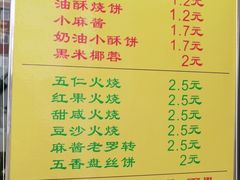 油酥烧饼 1.2元
小麻酱 1.7元
奶油小酥饼 1.7元
黑米椰蓉 2元
五仁火烧 2.5元
红果火烧 2.5元
甜咸火烧 2.5元
豆沙火烧 2.5元
麻酱老罗转 2.5元
五香盘丝饼 2元